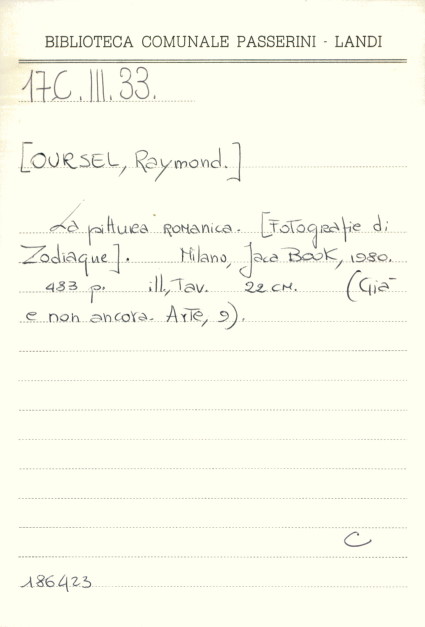 BIBLIOTECA COMUNALE PASSERINI - LANDI
17C.III.33.
[OURSEL, Raymond.]
La pittura romanica. [Fotografie di
Zodiaque]. Milano, Jaca Book, 1980.
483 p. ill., Tav. 22 cm. (Già
e non ancora. Arte, 9).
C
186423